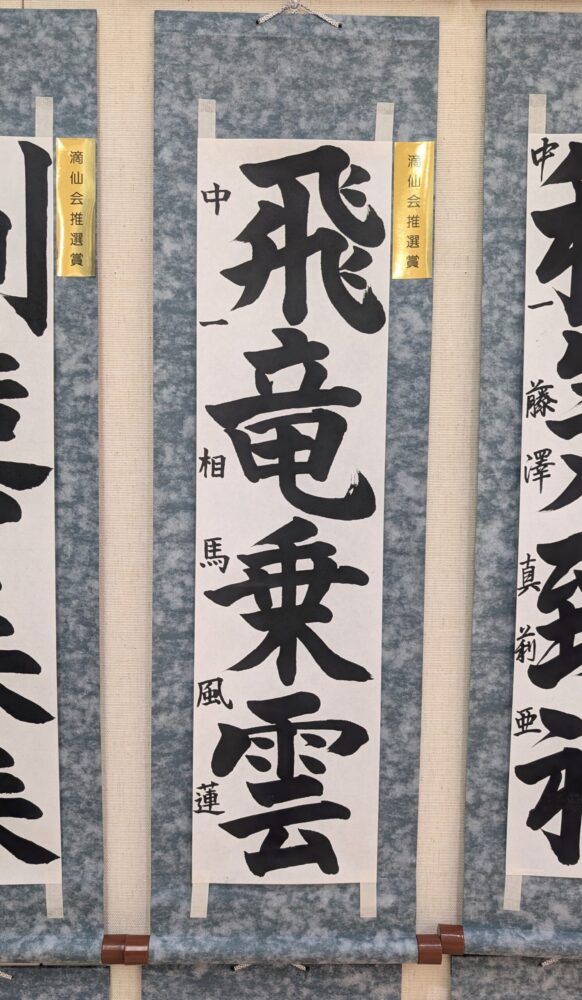 中一 藤澤真莉亜
滴仙会推選賞
飛竜乗雲
中一 相馬風蓮
滴仙会推選賞